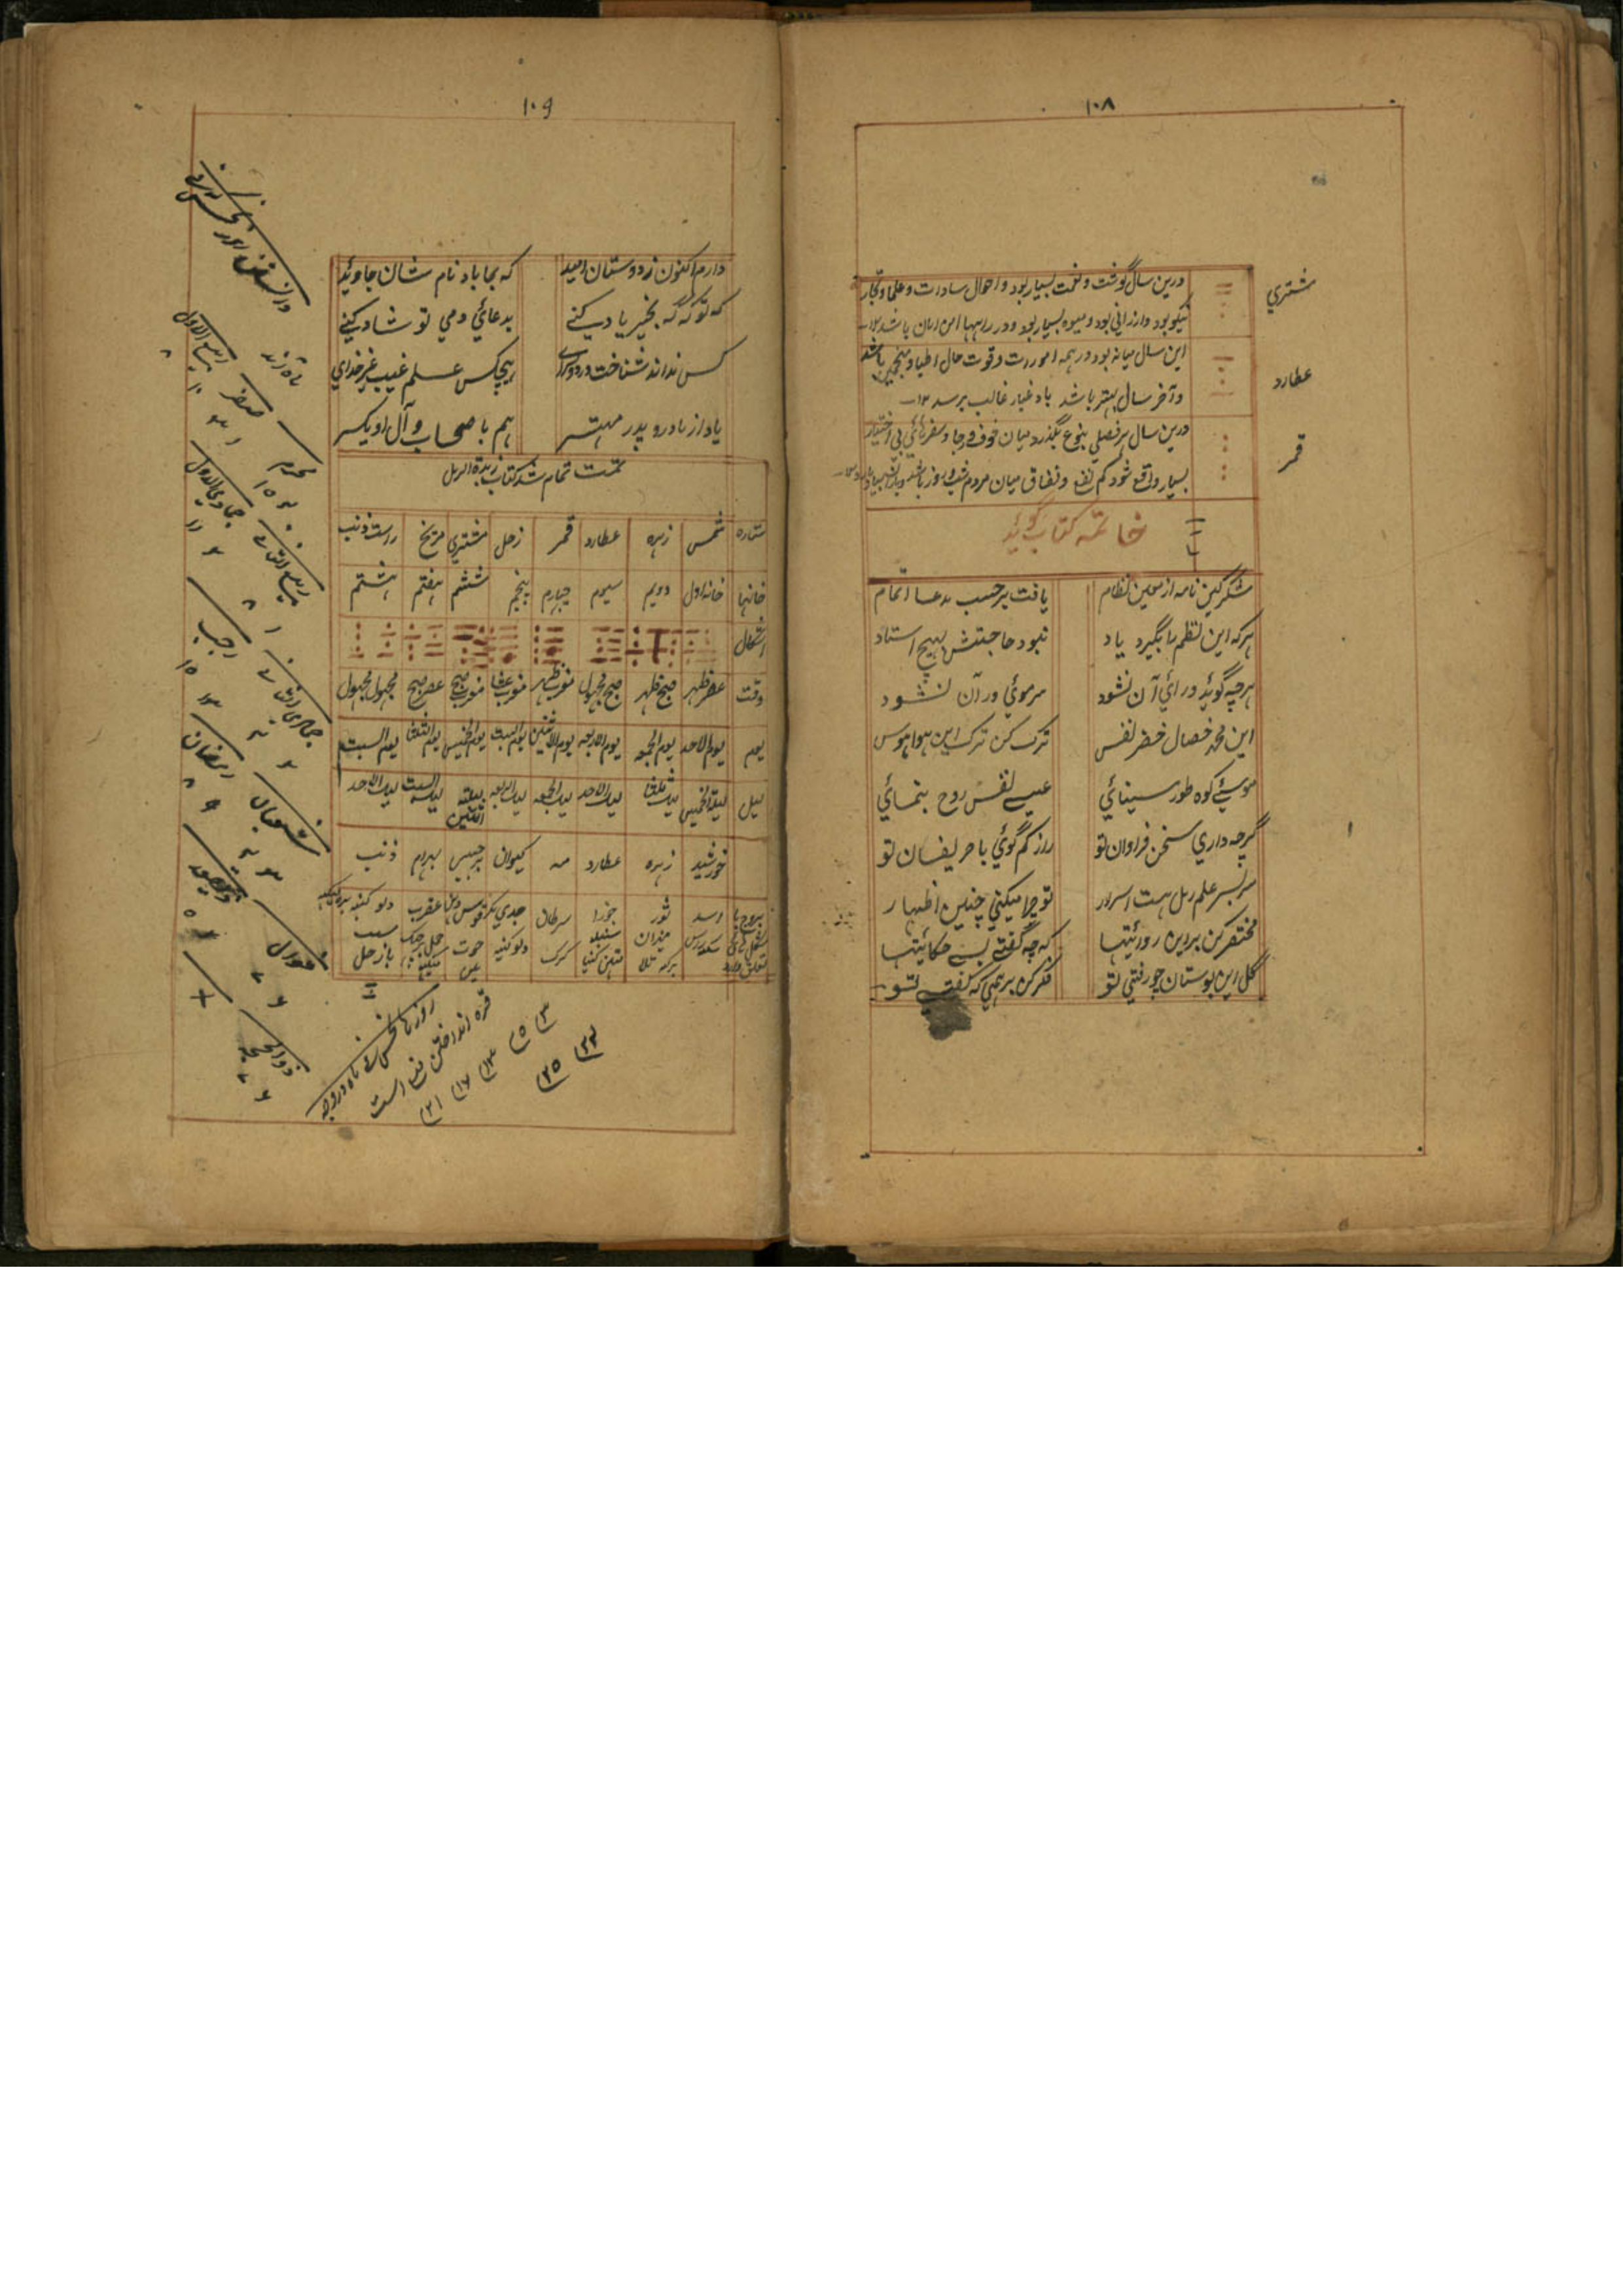 ۱۰۸
مشتري
درین سال گوشت و نعمت بسیار بود و احوال سادات و علما و تجار
نیکو بود و ارزانی بود و میوه بسیار بود و در راهها امن امان باشد ۱۲
عطارد
این سال میانه بود در همه امورات و قوت حال اطبا و منجمین باشد
و آخر سال بهتر باشد باد غبار غالب برسد ۱۲
قمر
درین سال هر فصلی بنوع بگذرد میان خوف و رجا و سفرهائی بی اختیار
بسیار واقع شود کم نفع و نفاق میان مردم
خاتمه کتاب گوئید
شکر کین نامه از معین نظام
یافت بر حسب مدعا اتمام
هر که این نظم را بگیرد یاد
نبود حاجتش بهیچ استاد
هرچه گوئید ورائي آن نشود
سر موئي در آن نشود
این محمد خصال خضر نفس
ترک کن ترک این هوا هوس
موسئے کوه طور سینائي
عیسے نفس روح بنمائي
گرچه داري سخن فراوان تو
راز کم گوئي با حریفان تو
سر بسر علم رمل هست اسرار
تو چرا میکني چنین اظهار
مختصر کن برین روائیتها
که چه گفتے بسے حکائیتها
گل این بوستان چو رفتي تو
فکر کن بر همي که گفتے تو
۱۰۹
دارم اکنون ز دوستان امید
که بجا باد نام شان جاوئید
که تو گه گه بخیر یاد کنے
بدعائي دمي تو شاد کنے
کس نداند شناخت در دو سرای
هیچکس علم غیب غیر خداي
یاد از مادر و پدر مهتر
هم باصحاب و آل او یکسر
تمت تمام شد کتاب زبدة الرمل
ستاره شمس زهره عطارد قمر زحل مشتري مریخ راست ذنب
خانها خانه اول دویم سیوم چهارم پنجم ششم هفتم هشتم
اشکال
وقت عصر ظهر صبح ظهر صبح مجهول مغرب ظهر مغرب عشا مغرب صبح عصر صبح مجهول مجهول
یوم یوم الاحد یوم الجمعه یوم الاربعه یوم الاثنین یوم السبت یوم الخمیس یوم الثلثا یوم السبت
لیل لیلة الخمیس لیلة ثلثا لیلة الاحد لیلة الجمعه لیلة الاربعه لیلة اثنین لیلة السبت لیلة الاحد
خورشید زهره عطارد مه کیوان برجیس بهرام ذنب
بروج اسد ثور جوزا سرطان جدي قوس عقرب دلو
میزان سنبله کرک حوت حمل
روزهائے نحس ماه در وجه
قرعه انداختن منع است
۳ ۵ ۱۳ ۱۶ ۲۱
۲۴ ۲۵
محرم
صفر
ربیع الاول
ربیع الثانے
جمادي الاول
جمادي الثانے
رجب
شعبان
رمضان
شوال
ذوالحجه